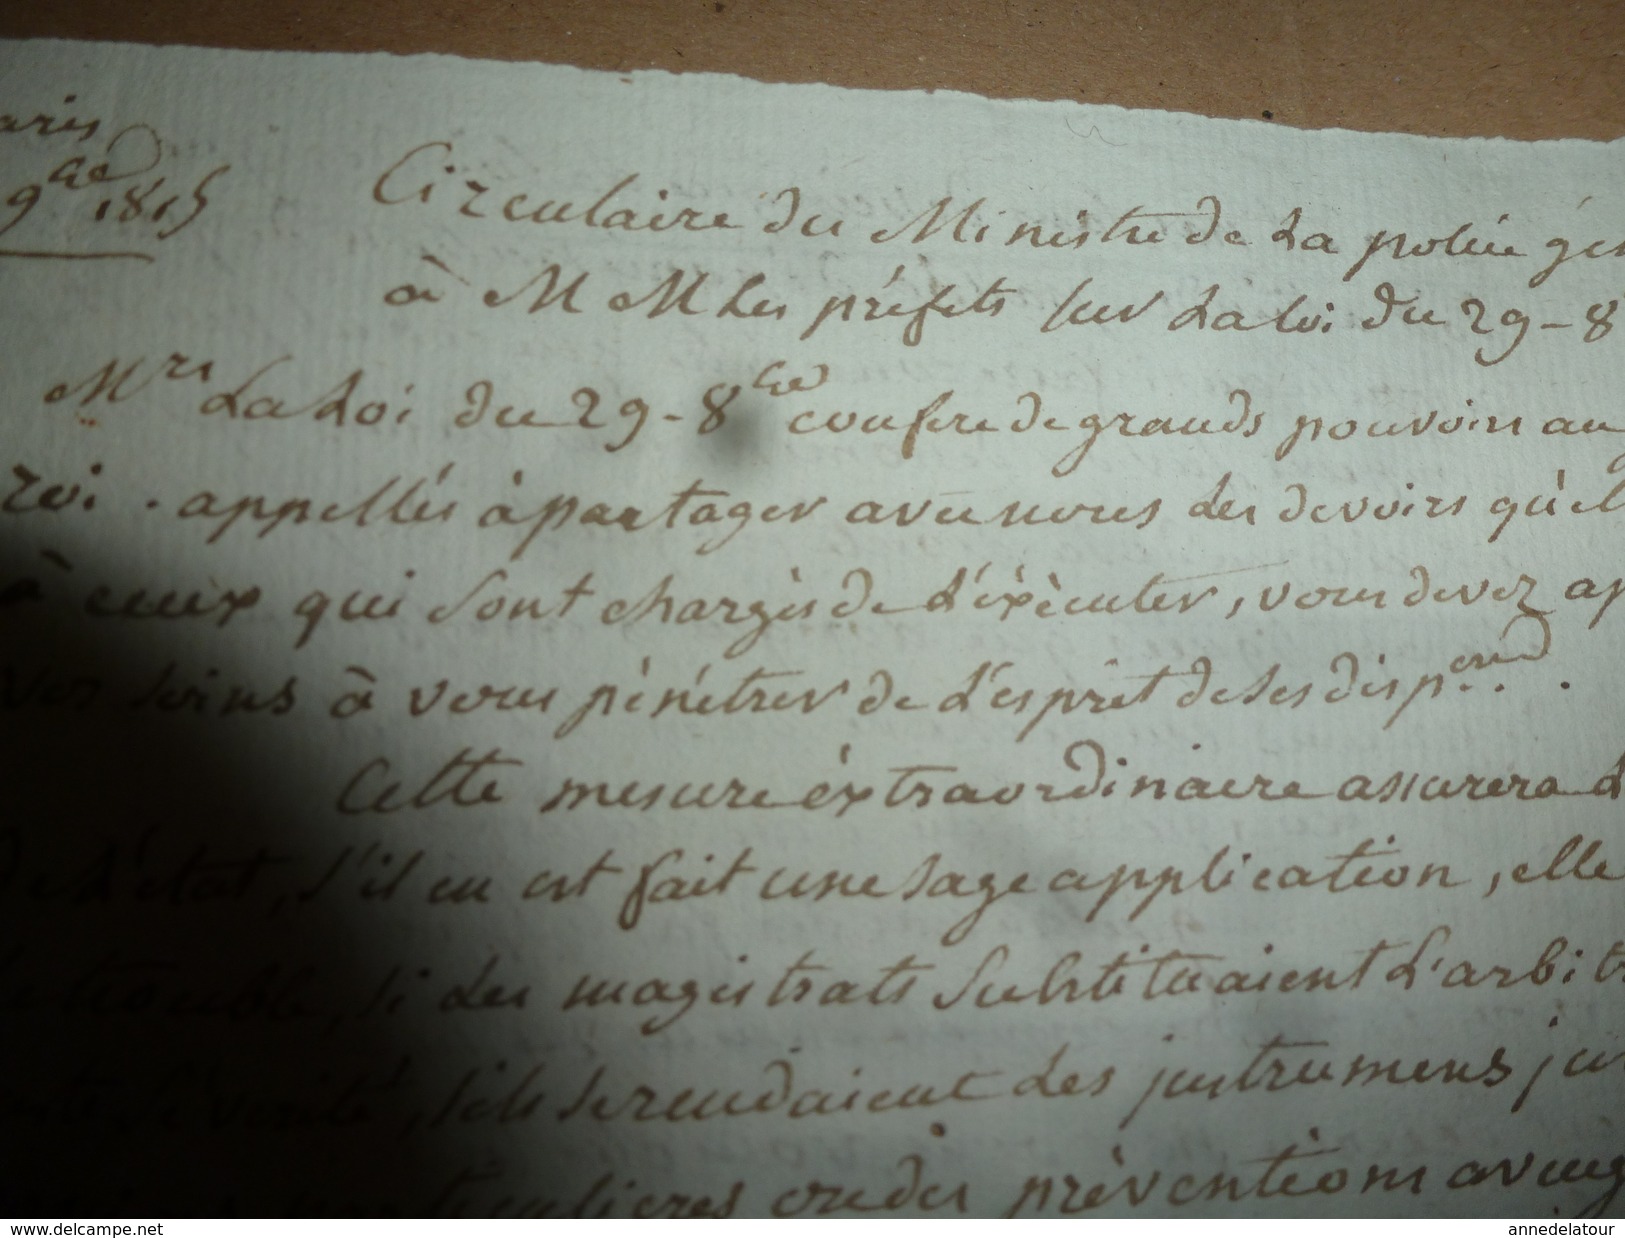 aris
9bre 1815
Circulaire du Ministre de la police gén
à MM les préfets sur la loi du 29 - 8
Mrs La Loi du 29 - 8bre confere de grands pouvoirs au
roi. appellés à partager avec nous les devoirs qu'el
à ceux qui sont chargés de l'éxécuter, vous devez ap
vos soins à vous pénétrer de l'esprit de ses dispons.
Cette mesure éxtraordinaire assurera l
de l'état, s'il en est fait une sage application, elle
le trouble, si des magistrats substituaient l'arbitr
sévérité, s'ils se rendaient les instrumens
particulieres ou des préventions aveug
delcampe.net
annedelatour